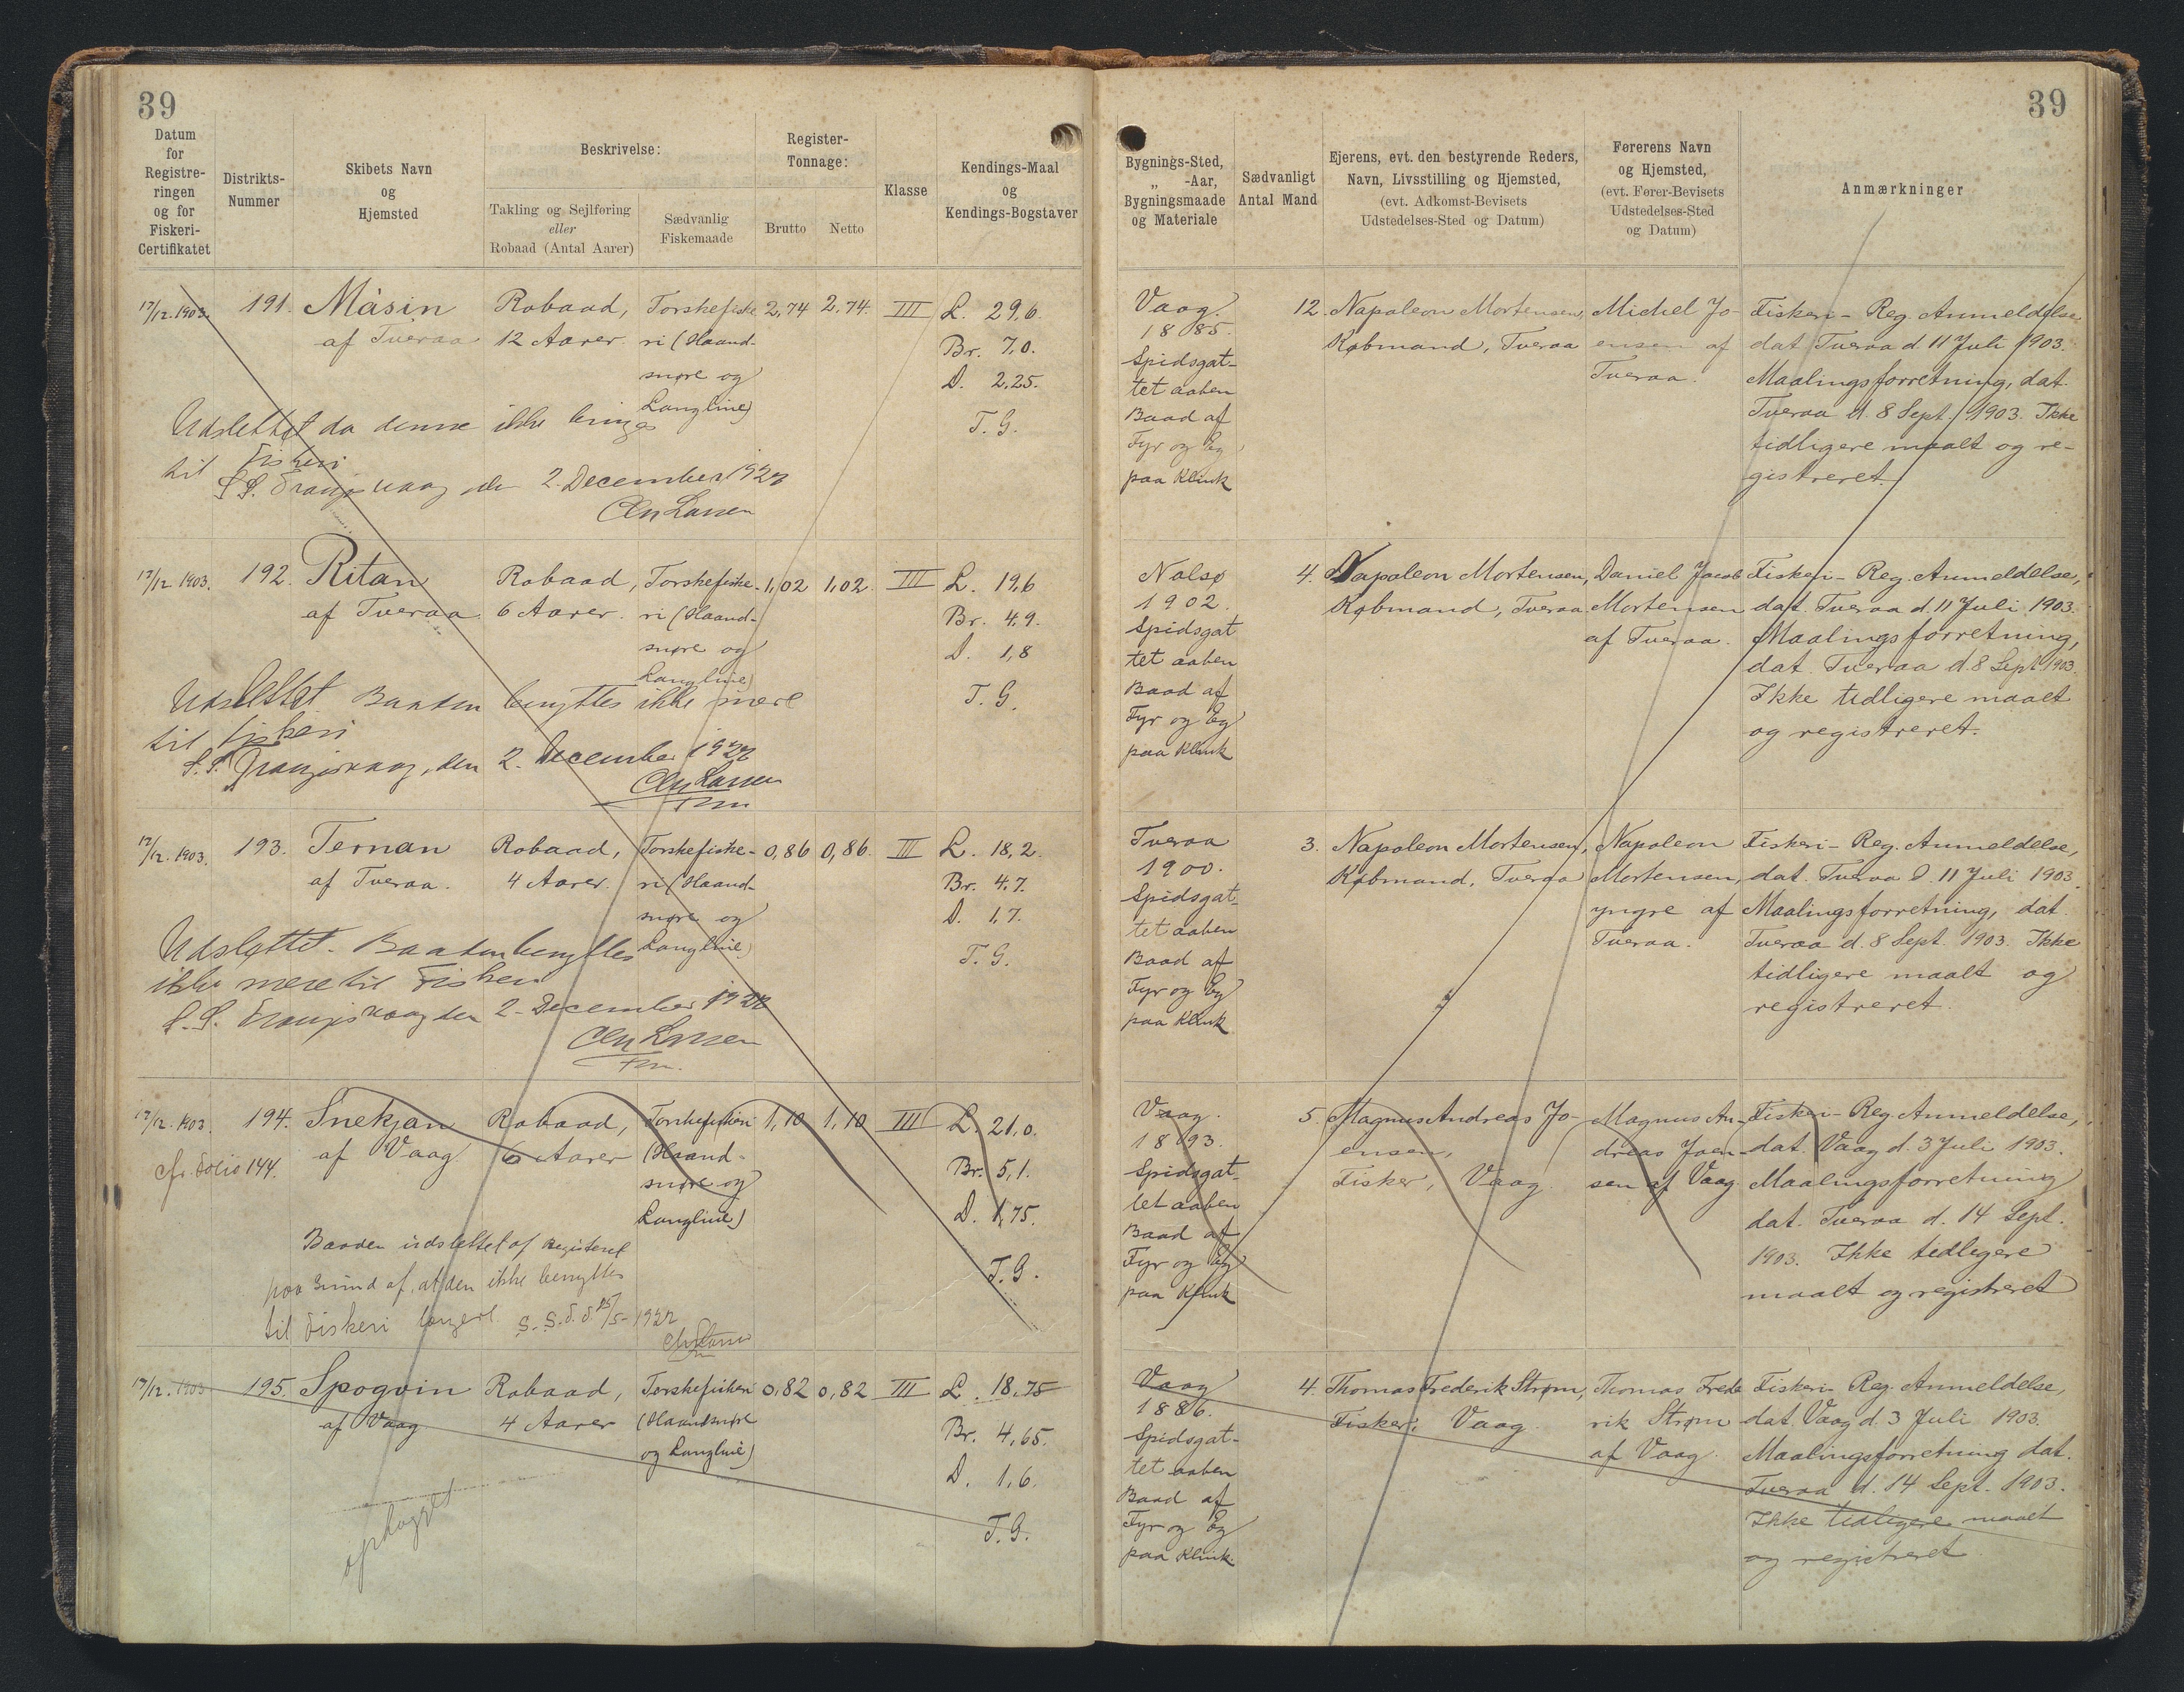 39
39
Datum
for
Registre-
ringen
og for
Fiskeri-
Certifikatet
Distrikts-
Nummer
Skibets Navn
og
Hjemsted
Beskrivelse:
Takling og Sejlføring
eller
Robaad (Antal Aarer)
Sædvanlig
Fiskemaade
Register-
Tonnage:
Brutto
Netto
Klasse
Kendings-Maal
og
Kendings-Bogstaver
Bygnings-Sted,
„ -Aar,
Bygningsmaade
og Materiale
Sædvanligt
Antal Mand
Ejerens, evt. den bestyrende Reders,
Navn, Livsstilling og Hjemsted,
(evt. Adkomst-Bevisets
Udstedelses-Sted og Datum)
Førerens Navn
og Hjemsted,
(evt. Fører-Bevisets
Udstedelses-Sted
og Datum)
Anmærkninger
17/12. 1903.
191.
Másin
af Tveraa
Robaad,
12 Aarer.
Torskefiske-
ri (Haand-
snøre og
Langline)
2,74
2,74.
III
L. 29,6.
Br. 7,0.
D. 2,25.
T. G.
Udslettet da denne ikke bruges
til Fiskeri
S. S. Trangisvaag den 2. December 1922
Chr Larsen
Vaag.
1885.
Spidsgat-
tet aaben
Baad af
Fyr og Eg
paa Klink
12.
Napoleon Mortensen,
Købmand, Tveraa
Michel Jo-
ensen af
Tveraa.
Fiskeri-Reg. Anmeldelse
dat. Tveraa d. 11 Juli 1903.
Maalingsforretning, dat.
Tveraa d. 8 Sept. 1903. Ikke
tidligere maalt og re-
gistreret.
17/12 1903.
192.
Ritan
af Tveraa
Robaad,
6 Aarer.
Torskefiske-
ri (Haand-
snøre og
Langline)
1,02
1,02.
III
L. 19,6
Br. 4,9.
D. 1,8
T. G.
Udslettet. Baaden benyttes ikke mere
til fiskeri
S. S. Trangisvaag, den 2. December 1922
Chr Larsen
Fm
Nolsø
1902.
Spidsgat
tet aaben
Baad af
Fyr og Eg
paa Klink
4.
Napoleon Mortensen,
Købmand, Tveraa
Daniel Jacob
Mortensen
af Tveraa.
Fiskeri-Reg. Anmeldelse,
dat. Tveraa d. 11 Juli 1903.
Maalingsforretning,
dat. Tveraa d. 8 Sept. 1903.
Ikke tidligere maalt
og registreret.
17/12. 1903.
193.
Ternan
af Tveraa.
Robaad,
4 Aarer.
Torskefiske-
ri (Haand-
snøre og
Langline)
0,86
0,86.
III
L. 18,2.
Br. 4,7.
D. 1,7.
T. G.
Udslettet. Baaden benyttes
ikke mere til Fiskeri
S. S. Trangisvaag den 2. December 1922
Chr Larsen
Fm.
Tveraa
1900.
Spidsgat-
tet aaben
Baad af
Fyr og Eg
paa Klink
3.
Napoleon Mortensen,
Købmand, Tveraa
Napoleon
Mortensen,
yngre af
Tveraa.
Fiskeri-Reg. Anmeldelse,
dat. Tveraa d. 11 Juli 1903.
Maalingsforretning, dat.
Tveraa d. 8 Sept. 1903. Ikke
tidligere maalt og
registreret.
17/12. 1903.
cfr. Folio 144.
194.
Snekjan
af Vaag
Robaad,
6 Aarer
Torskefiskeri
(Haand-
snøre og
Langline)
1,10
1,10
III
L. 21,0.
Br. 5,1.
D. 1,75.
T. G.
Baaden udslettet af Registeret
paa Grund af, at den ikke benyttes
til Fiskeri længere S. S. d. 25/5-1922
Chr Larsen
Vaag.
1893.
Spidsgat-
tet aaben
Baad af
Fyr og Eg
paa Klink
5.
Magnus Andreas Jo-
ensen,
Fisker, Vaag.
Magnus An-
dreas Joen-
sen af Vaag
Fiskeri-Reg. Anmeldelse,
dat. Vaag d. 3 Juli 1903.
Maalingsforretning
dat. Tveraa d. 14 Sept.
1903. Ikke tidligere
maalt og registreret
17/12. 1903
195.
Spogvin
af Vaag
Robaad,
4 Aarer
Torskefiskeri
(Haandsnøre
og Langline)
0,82
0,82
III
L. 18,75
Br. 4,65.
D. 1,6.
T. G.
ophugget
Vaag
1886.
Spidsgat-
tet aaben
Baad af
Fyr og Eg
paa Klink.
4.
Thomas Frederik Strøm,
Fisker, Vaag.
Thomas Frede
rik Strøm
af Vaag.
Fiskeri-Reg. Anmeldelse,
dat. Vaag d. 3 Juli 1903.
Maalingsforretning dat.
Tveraa d. 14 Sept. 1903.
Ikke tidligere maalt
og registreret